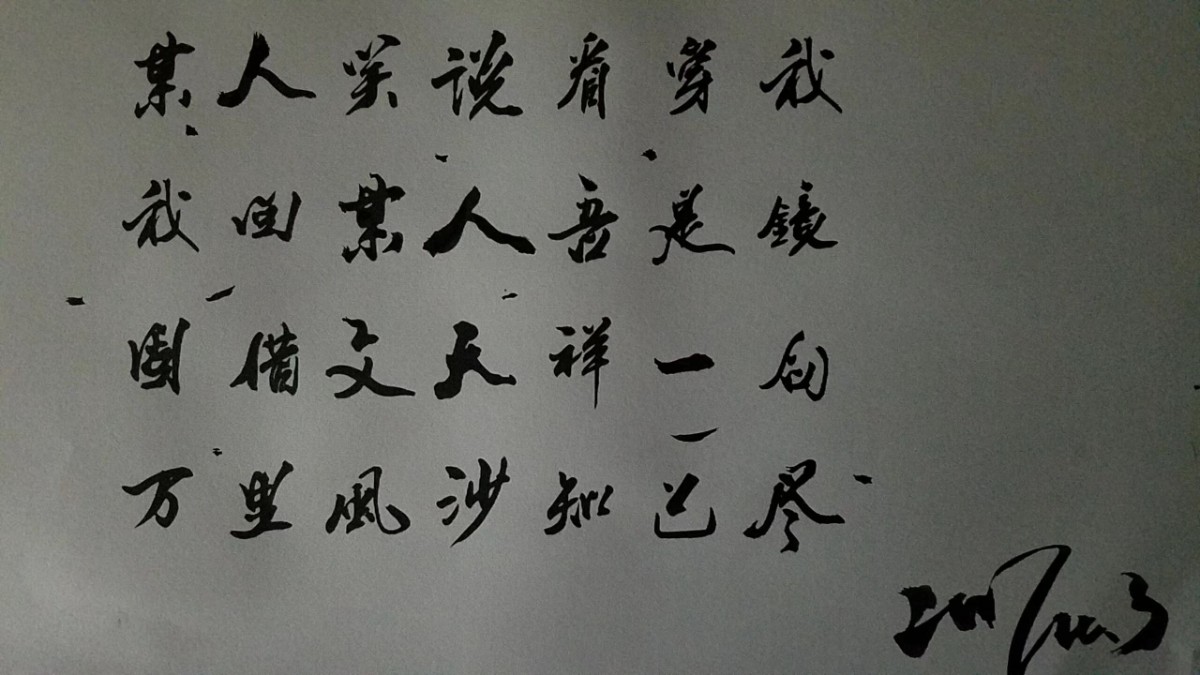 某人笑说看穿我
我回某人吾是鏡
借文天祥一句
万里風沙知己尽